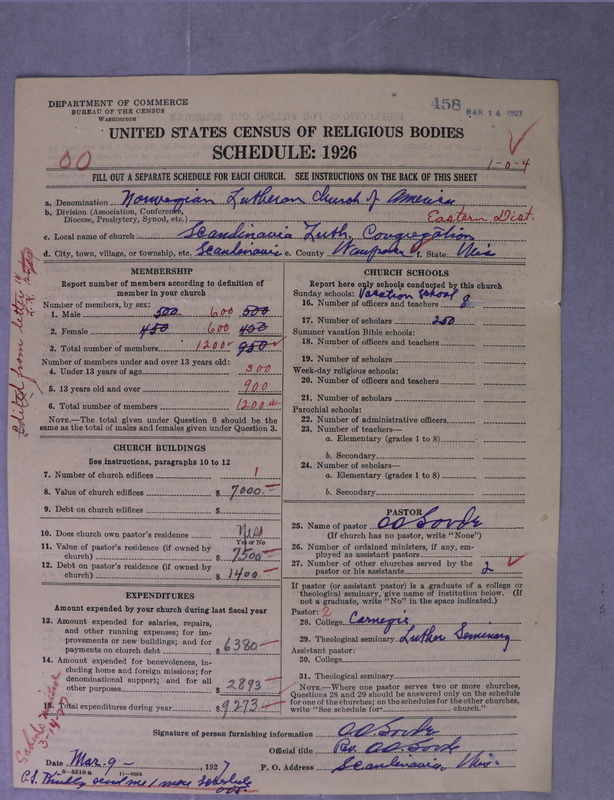 DEPARTMENT OF COMMERCE
BUREAU OF THE CENSUS
WASHINGTON
458 MAR 14 1927
UNITED STATES CENSUS OF RELIGIOUS BODIES
SCHEDULE: 1926
00
1-0-4
FILL OUT A SEPARATE SCHEDULE FOR EACH CHURCH. SEE INSTRUCTIONS ON THE BACK OF THIS SHEET
a. Denomination Norwegian Lutheran Church of America
b. Division (Association, Conference, Diocese, Presbytery, Synod, etc.) Eastern Dist.
c. Local name of church Scandinavia Luth. Congregation
d. City, town, village, or township, etc. Scandinavia e. County Waupaca f. State Wis
MEMBERSHIP
Report number of members according to definition of member in your church
Number of members, by sex:
1. Male 500 600 500
2. Female 450 600 450
3. Total number of members 1200 950
Number of members under and over 13 years old:
4. Under 13 years of age 300
5. 13 years old and over 900
6. Total number of members 1200
NOTE.—The total given under Question 6 should be the same as the total of males and females given under Question 3.
CHURCH BUILDINGS
See instructions, paragraphs 10 to 12
7. Number of church edifices 1
8. Value of church edifices $ 7000.
9. Debt on church edifices $
10. Does church own pastor's residence Yes
Yes or No
11. Value of pastor's residence (if owned by church) $ 7500
12. Debt on pastor's residence (if owned by church) $ 1400
EXPENDITURES
Amount expended by your church during last fiscal year
13. Amount expended for salaries, repairs, and other running expenses; for improvements or new buildings; and for payments on church debt $ 6380
14. Amount expended for benevolences, including home and foreign missions; for denominational support; and for all other purposes $ 2893
15. Total expenditures during year $ 9273
CHURCH SCHOOLS
Report here only schools conducted by this church
Sunday schools: Vacation School
16. Number of officers and teachers 8
17. Number of scholars 250
Summer vacation Bible schools:
18. Number of officers and teachers
19. Number of scholars
Week-day religious schools:
20. Number of officers and teachers
21. Number of scholars
Parochial schools:
22. Number of administrative officers
23. Number of teachers—
a. Elementary (grades 1 to 8)
b. Secondary
24. Number of scholars—
a. Elementary (grades 1 to 8)
b. Secondary
PASTOR
25. Name of pastor
(If church has no pastor, write "None")
26. Number of ordained ministers, if any, employed as assistant pastors
27. Number of other churches served by the pastor or his assistants 2
If pastor (or assistant pastor) is a graduate of a college or theological seminary, give name of institution below. (If not a graduate, write "No" in the space indicated.)
Pastor: 2
28. College Carnegie
29. Theological seminary Luther Seminary
Assistant pastor:
30. College
31. Theological seminary
NOTE.—Where one pastor serves two or more churches, Questions 28 and 29 should be answered only on the schedule for one of the churches; on the schedules for the other churches, write "See schedule for church."
Signature of person furnishing information
Official title Rev.
Date Mar. 9 – , 1927 P. O. Address Scandinavia Wis.
8—5518 a
P.S. Kindly send me 1 more Schedule
Edited from letter
3-14-27